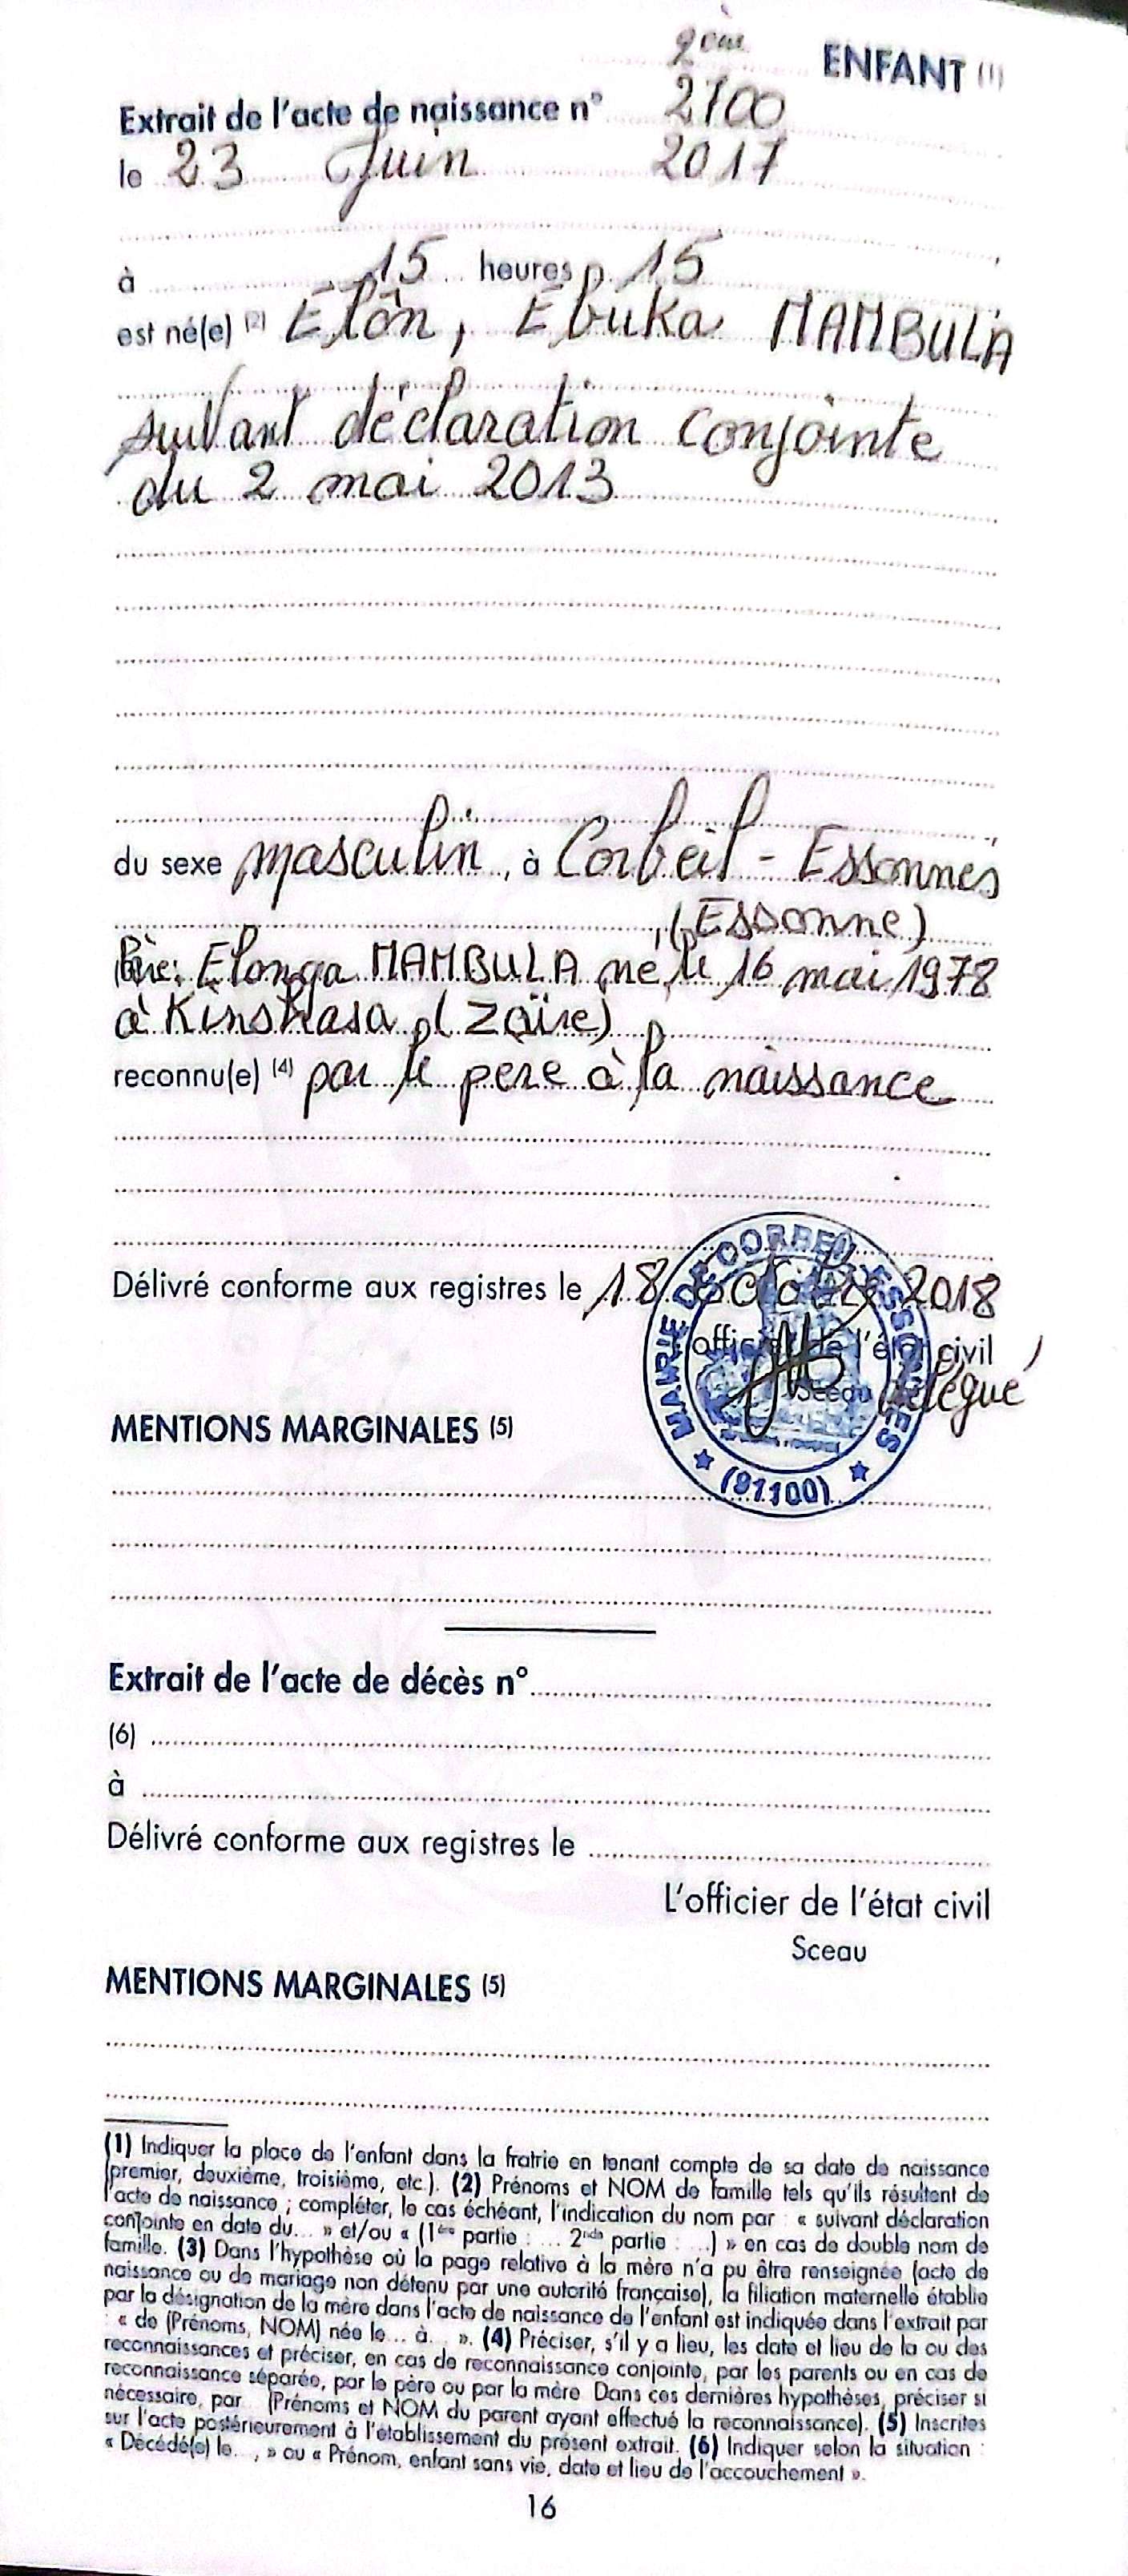 2ème ENFANT (1)
Extrait de l'acte de naissance n° 2100
le 23 Juin 2017
à 15 heures 15
est né(e) (2) Elôn, Ebuka MAMBULA
suivant déclaration conjointe
du 2 mai 2013
du sexe masculin, à Corbeil-Essonnes
(Essonne)
Père: Elonga MAMBULA né le 16 mai 1978
à Kinshasa (Zaïre)
reconnu(e) (4) par le père à la naissance
Délivré conforme aux registres le 18 octobre 2018
officier de l'état civil
Sceau délégué
MAIRIE DE CORBEIL ESSONNES
(91100)
MENTIONS MARGINALES (5)
Extrait de l'acte de décès n°
(6)
à
Délivré conforme aux registres le
L'officier de l'état civil
Sceau
MENTIONS MARGINALES (5)
(1) Indiquer la place de l'enfant dans la fratrie en tenant compte de sa date de naissance
(premier, deuxième, troisième, etc.). (2) Prénoms et NOM de famille tels qu'ils résultent de
l'acte de naissance ; compléter, le cas échéant, l'indication du nom par : « suivant déclaration
conjointe en date du... » et/ou « (1ère partie : ... 2nde partie : ...) » en cas de double nom de
famille. (3) Dans l'hypothèse où la page relative à la mère n'a pu être renseignée (acte de
naissance ou de mariage non détenu par une autorité française), la filiation maternelle établie
par la désignation de la mère dans l'acte de naissance de l'enfant est indiquée dans l'extrait par
: « de (Prénoms, NOM) née le... à... ». (4) Préciser, s'il y a lieu, les date et lieu de la ou des
reconnaissances et préciser, en cas de reconnaissance conjointe, par les parents ou en cas de
reconnaissance séparée, par le père ou par la mère. Dans ces dernières hypothèses, préciser si
nécessaire, par... (Prénoms et NOM du parent ayant effectué la reconnaissance). (5) Inscrites
sur l'acte postérieurement à l'établissement du présent extrait. (6) Indiquer selon la situation :
« Décédé(e) le..., » ou « Prénom, enfant sans vie, date et lieu de l'accouchement ».
16